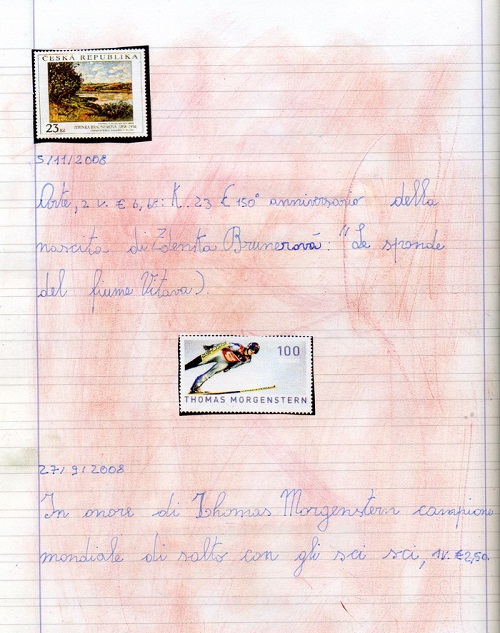 ČESKÁ REPUBLIKA
23 Kč
5/11/2008
Arte, 2 v. € 6,65: K. 23 € 150° anniversario della
nascita di Zdenka Brunerová: "Le sponde
del fiume Vltava).
100
THOMAS MORGENSTERN
27/9/2008
In onore di Thomas Morgenstern campione
mondiale di salto con gli sci sci, 1v. €2,50.